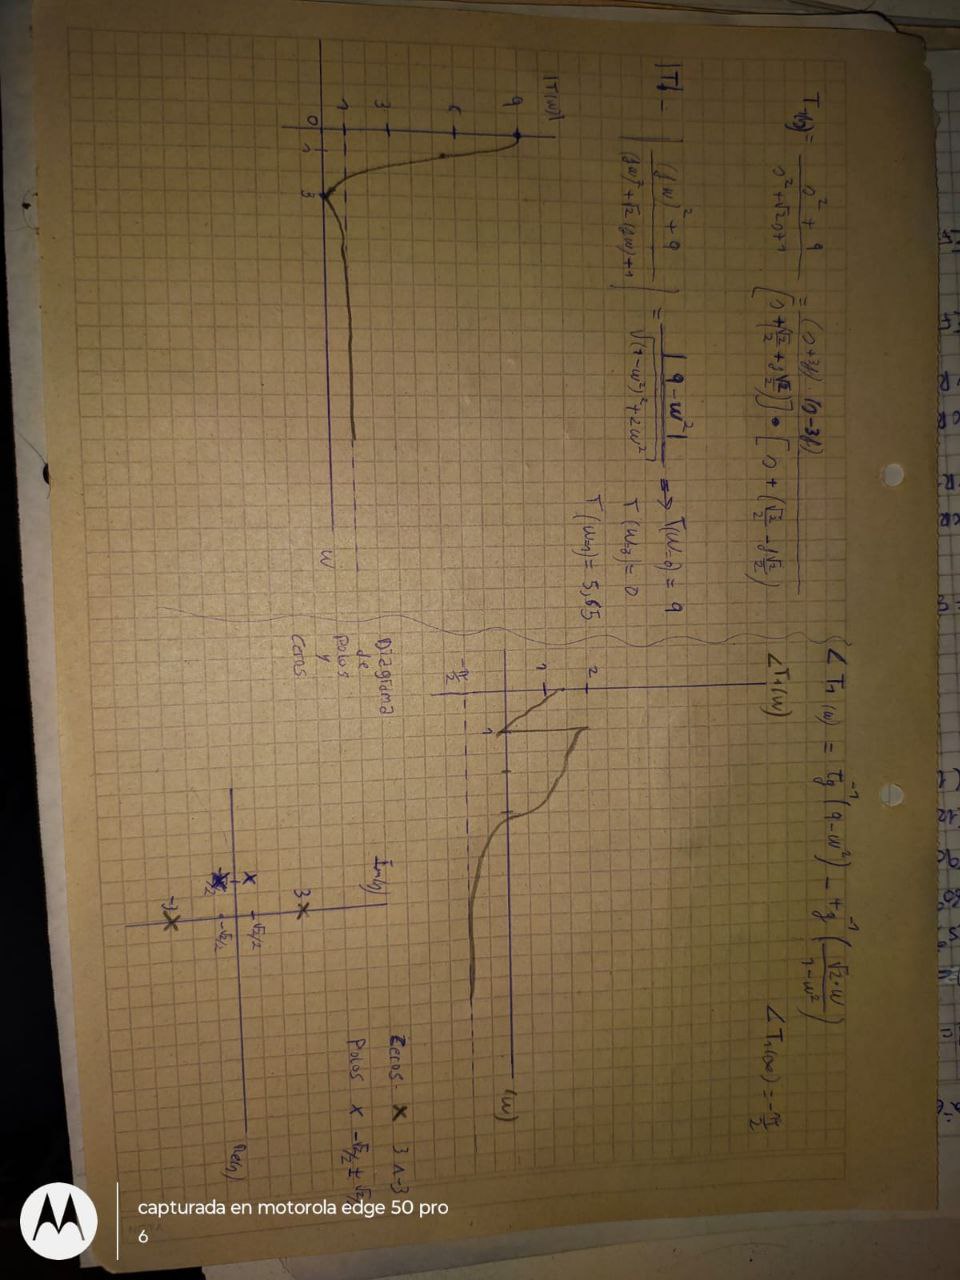 T₁(s) = (s² + 9)/(s² + √2 s + 1) = (s+3j)·(s-3j)/[s + (√2/2 + j√2/2)]·[s + (√2/2 - j√2/2)]
|T₁| = |((jw)² + 9)/((jw)² + √2(jw) + 1)| = |9 - w²|/√((1-w²)² + 2w²) => T(w=0) = 9
T(w=3) = 0
T(w=1) = 5,65
|T(w)|
9
6
3
1
0
1
3
w
∠T₁(w) = tg⁻¹(9-w²) - tg⁻¹(√2·w/(1-w²))
∠T₁(∞) = -π/2
∠T₁(w)
2
1
-π/2
1
(w)
Diagrama
de
polos
y
ceros
Im(s)
3
√2/2
-√2/2
-√2/2
-3
Re(s)
Zeros x 3 ∧ -3
Polos x -√2/2 ± √2/2
capturada en motorola edge 50 pro
6